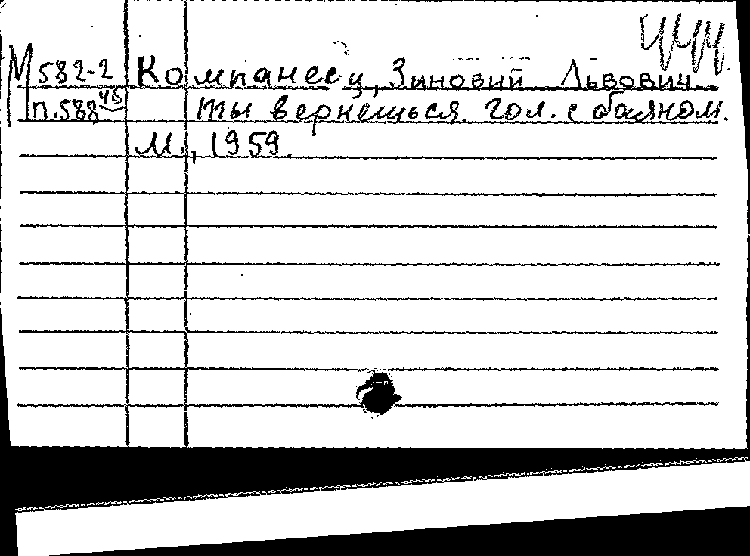 М 582-2 Компанеец, Зиновий Львович
п.588 45 Ты вернешься. гол. с баяном.
М., 1959.